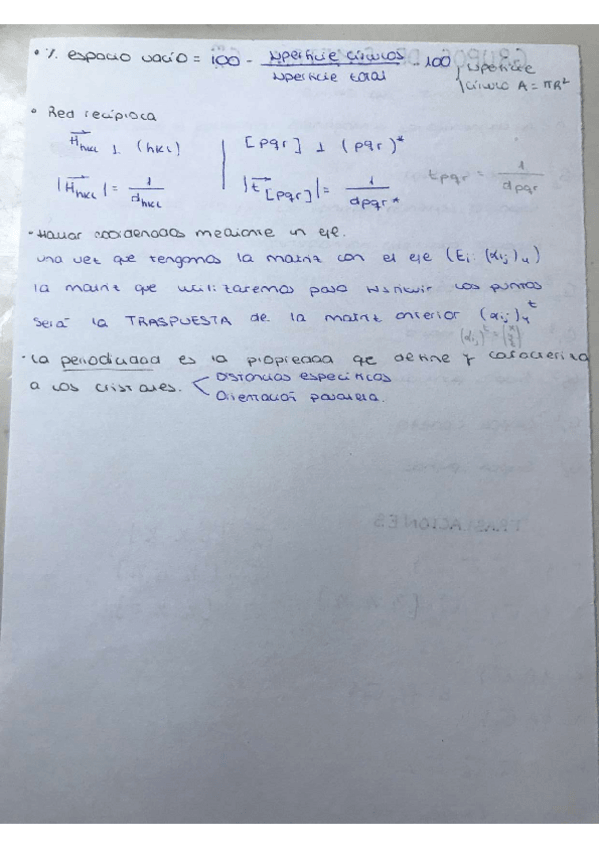 • % espacio vacío = 100 - superficie círculos / superficie total · 100 | superficie círculo A = πR²
• Red recíproca
H⃗hkl ⊥ (hkl) | [pqr] ⊥ (pqr)*
|H⃗hkl| = 1/dhkl | |t⃗[pqr]| = 1/dpqr* tpqr = 1/dpqr
• Hallar coordenadas mediante un eje.
una vez que tengamos la matriz con el eje (Ei (αij)4)
la matriz que utilizaremos para sustituir los puntos
será la TRASPUESTA de la matriz anterior (αij)4 t
(αij)t =
• La periodicidad es la propiedad que define y caracteriza
a los cristales. < Distancias específicas
Orientación paralela.